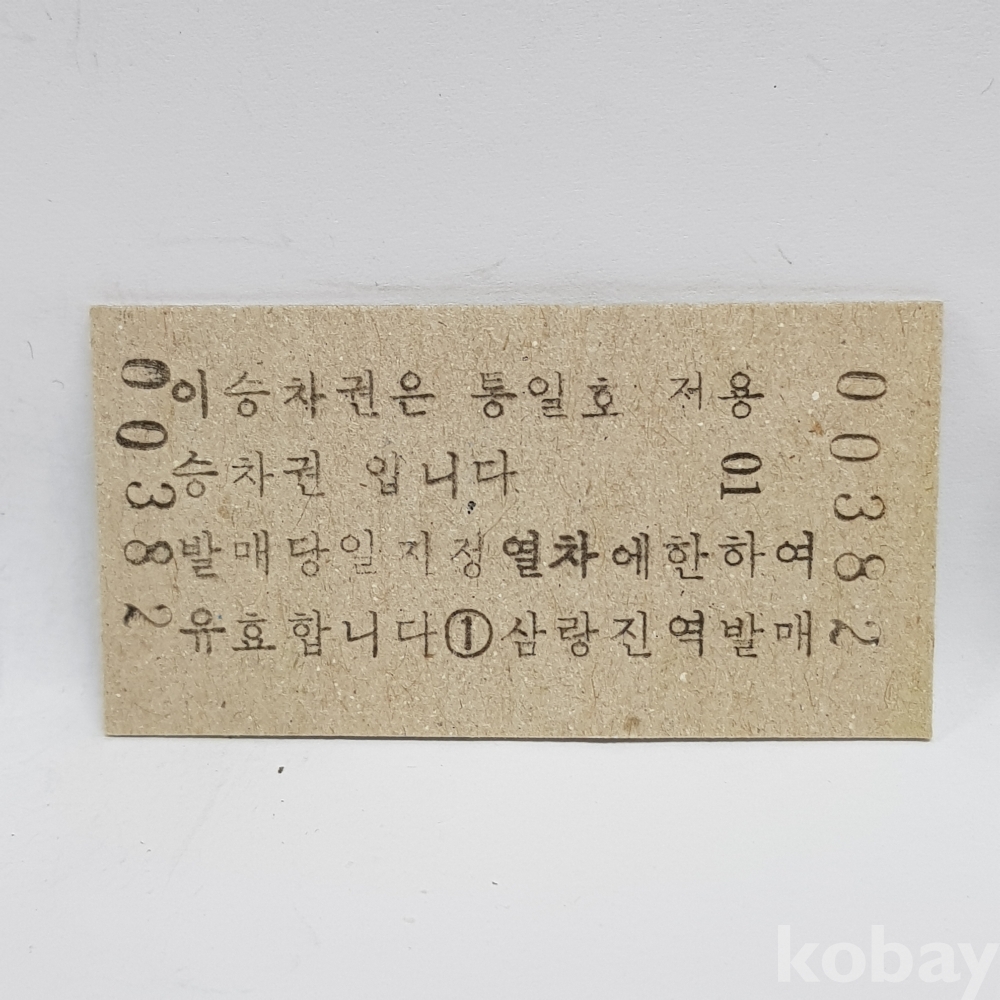 이승차권은 통일호 저용
승차권 입니다
01
발매당일 지정열차에한하여
유효합니다①삼랑진역발매
00382
00382
kobay